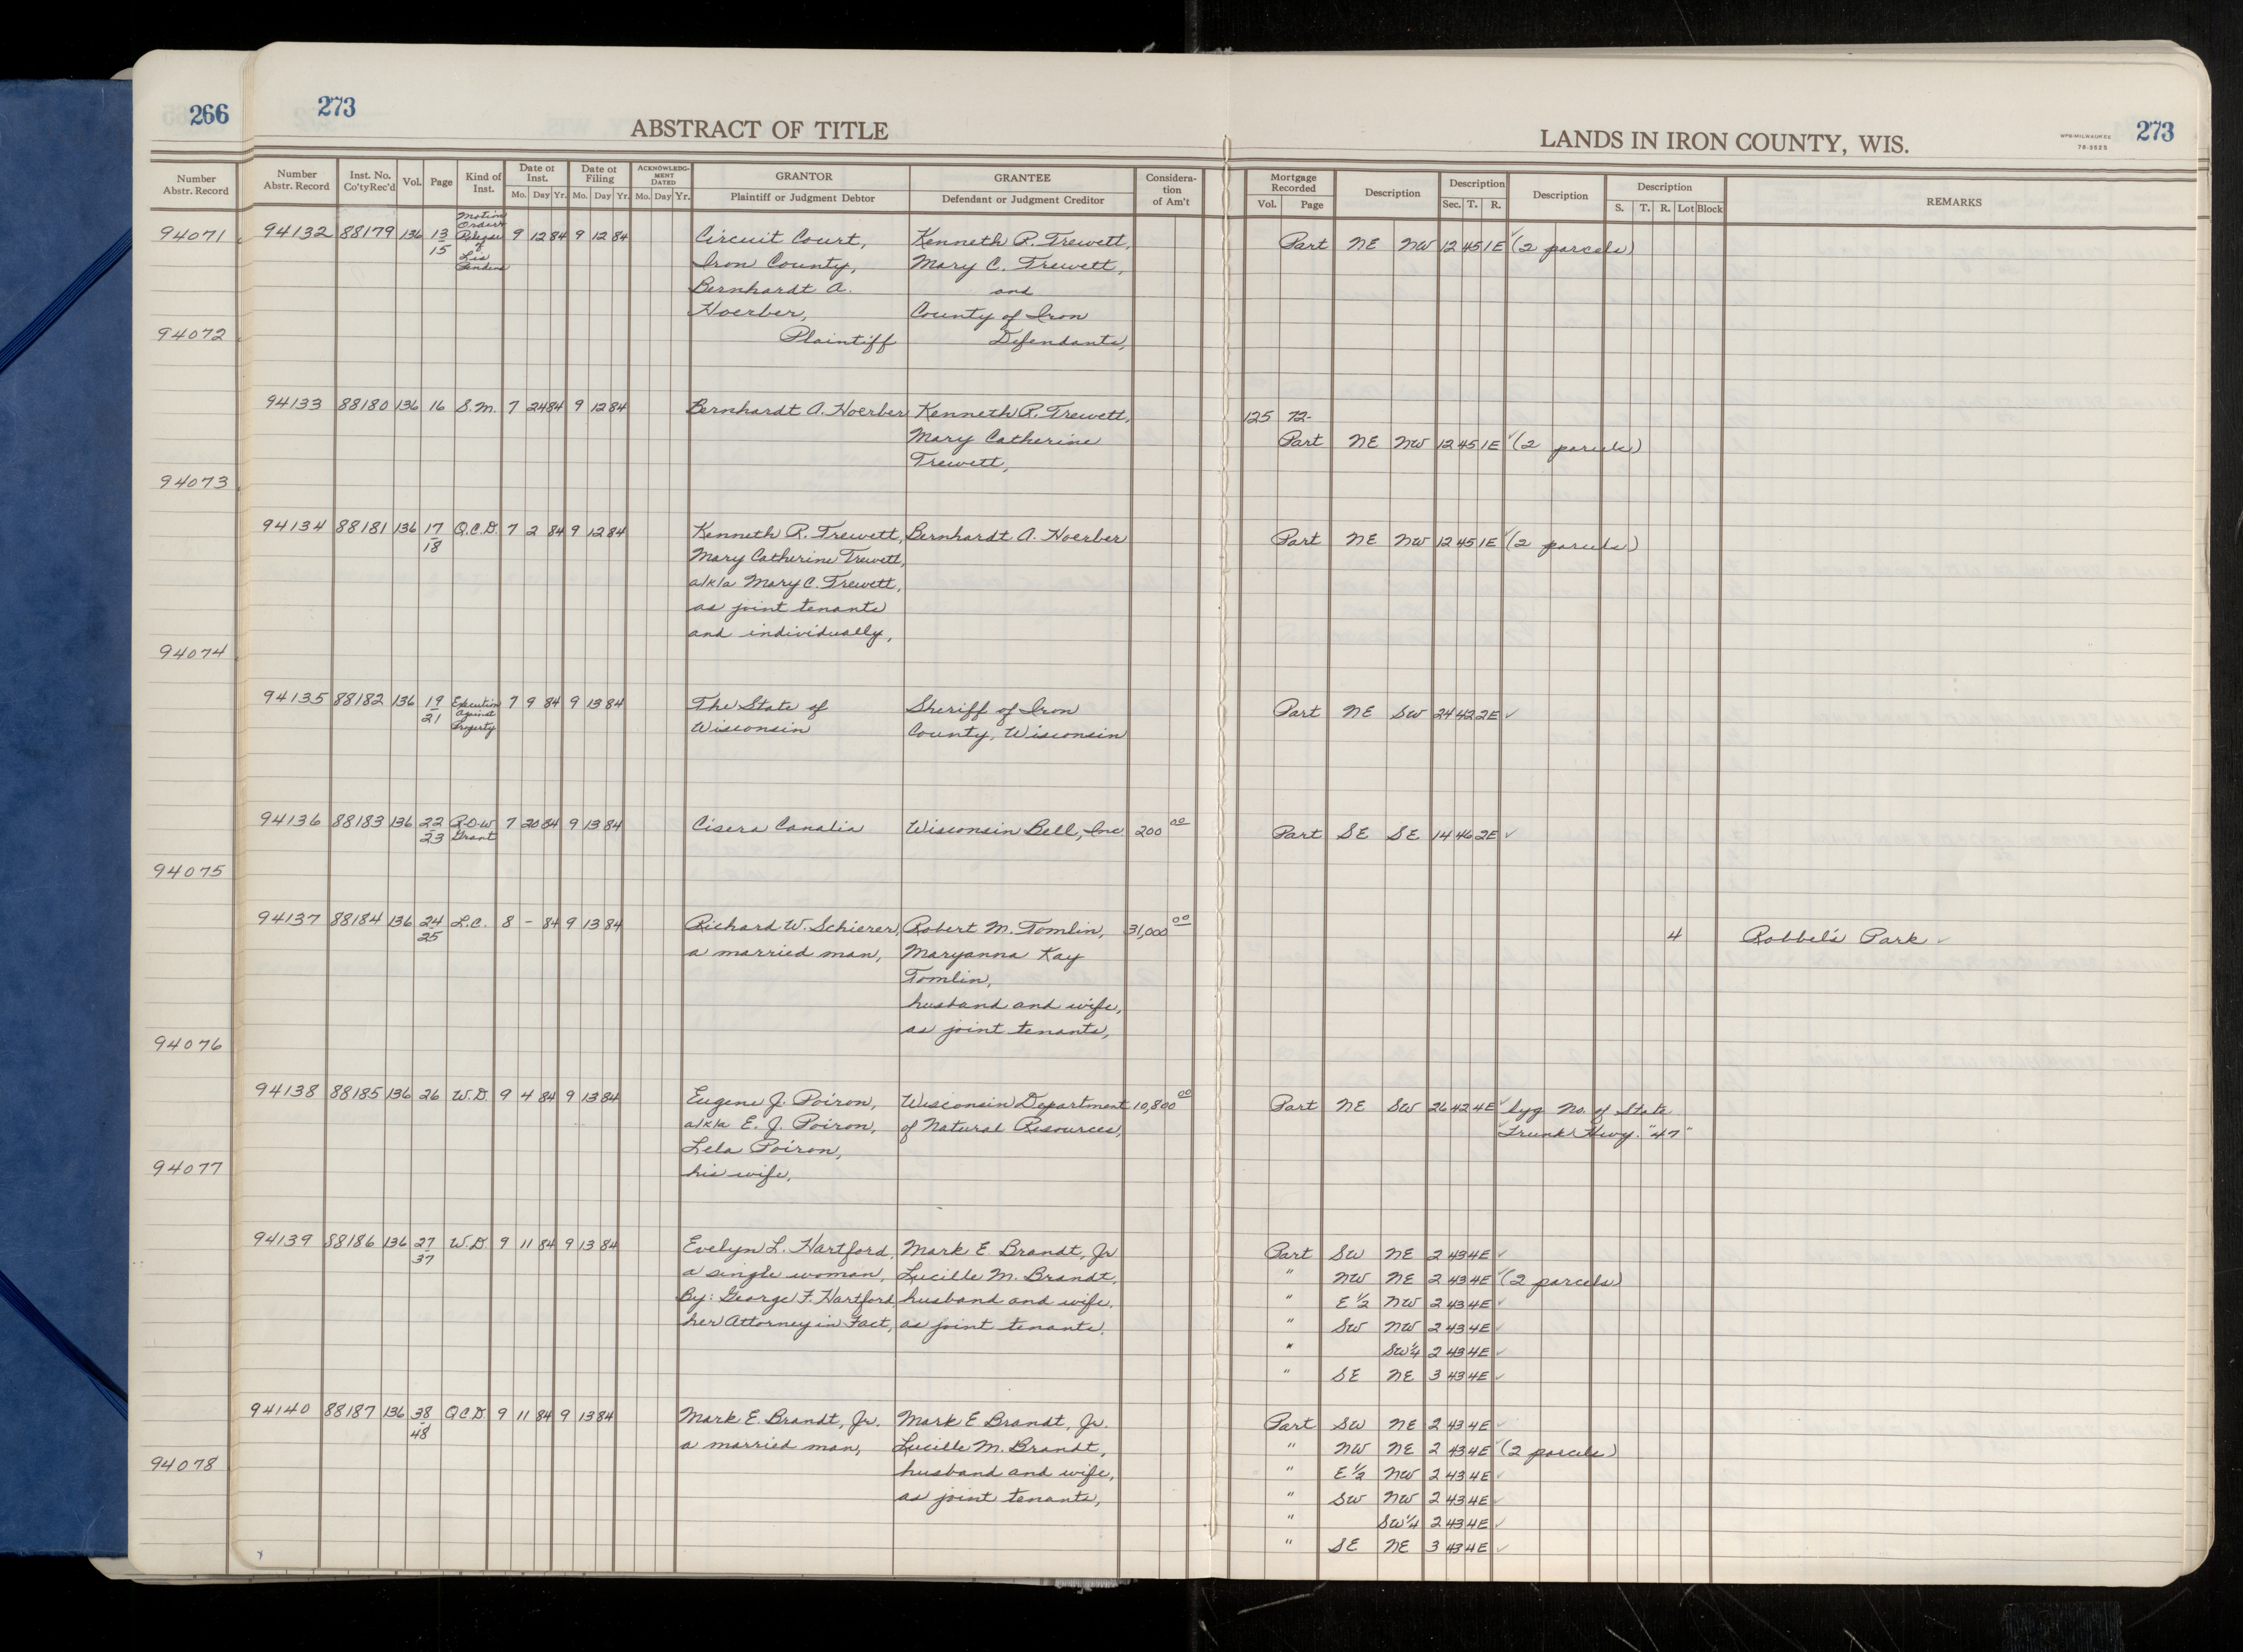 266
273
ABSTRACT OF TITLE
LANDS IN IRON COUNTY, WIS.
WPB-MILWAUKEE
78-2525
273
Number Abstr. Record
Number Abstr. Record
Inst. No. Co'ty Rec'd
Vol.
Page
Kind of Inst.
Date of Inst.
Mo. Day Yr.
Date of Filing
Mo. Day Yr.
ACKNOWLEDG-MENT DATED
Mo. Day Yr.
GRANTOR
Plaintiff or Judgment Debtor
GRANTEE
Defendant or Judgment Creditor
Considera-tion of Am't
Mortgage Recorded
Vol. Page
Description
Description
Sec. T. R.
Description
Description
S. T. R. Lot Block
REMARKS
94071
94072
94073
94074
94075
94076
94077
94078
94132 88179 136 13/15 Motion Order Release of Lis Pendens 9 12 84 9 12 84 Circuit Court, Kenneth R. Trewett, Part NE NW 12 45 1E (2 parcels)
Iron County, Mary C. Trewett,
Bernhardt A. and
Hoerber, County of Iron
Plaintiff Defendants,
94133 88180 136 16 S.M. 7 24 84 9 12 84 Bernhardt A. Hoerber Kenneth R. Trewett, 125 72-
Mary Catherine Part NE NW 12 45 1E (2 parcels)
Trewett,
94134 88181 136 17/18 Q.C.D. 7 2 84 9 12 84 Kenneth R. Trewett, Bernhardt A. Hoerber Part NE NW 12 45 1E (2 parcels)
Mary Catherine Trewett,
a/k/a Mary C. Trewett,
as joint tenants
and individually,
94135 88182 136 19/21 Execution Against Property 7 9 84 9 13 84 The State of Sheriff of Iron Part NE SW 24 42 2E ✓
Wisconsin County, Wisconsin
94136 88183 136 22/23 R-O-W Grant 7 20 84 9 13 84 Cisera Canalia Wisconsin Bell, Inc. 200 00 Part SE SE 14 46 2E ✓
94137 88184 136 24/25 L.C. 8 - 84 9 13 84 Richard W. Schierer, Robert M. Tomlin, 31,000 00 4 Robbel's Park ✓
a married man, Maryanna Kay
Tomlin,
husband and wife,
as joint tenants,
94138 88185 136 26 W.D. 9 4 84 9 13 84 Eugene J. Poiron, Wisconsin Department 10,800 00 Part NE SW 26 42 4E lyg No. of State
a/k/a E. J. Poiron, of Natural Resources, Trunk Hwy. "47"
Lela Poiron,
his wife,
94139 88186 136 27/37 W.D. 9 11 84 9 13 84 Evelyn L. Hartford, Mark E Brandt, Jr Part SW NE 2 43 4E ✓
a single woman, Lucille M. Brandt, " NW NE 2 43 4E (2 parcels)
By: George F. Hartford, husband and wife, " E 1/2 NW 2 43 4E ✓
her Attorney in Fact, as joint tenants, " SW NW 2 43 4E ✓
" SW 1/4 2 43 4E ✓
" SE NE 3 43 4E ✓
94140 88187 136 38/48 QCD. 9 11 84 9 13 84 Mark E. Brandt, Jr. Mark E Brandt, Jr. Part SW NE 2 43 4E ✓
a married man, Lucille M. Brandt, " NW NE 2 43 4E (2 parcels)
husband and wife, " E 1/2 NW 2 43 4E ✓
as joint tenants, " SW NW 2 43 4E ✓
" SW 1/4 2 43 4E ✓
" SE NE 3 43 4E ✓